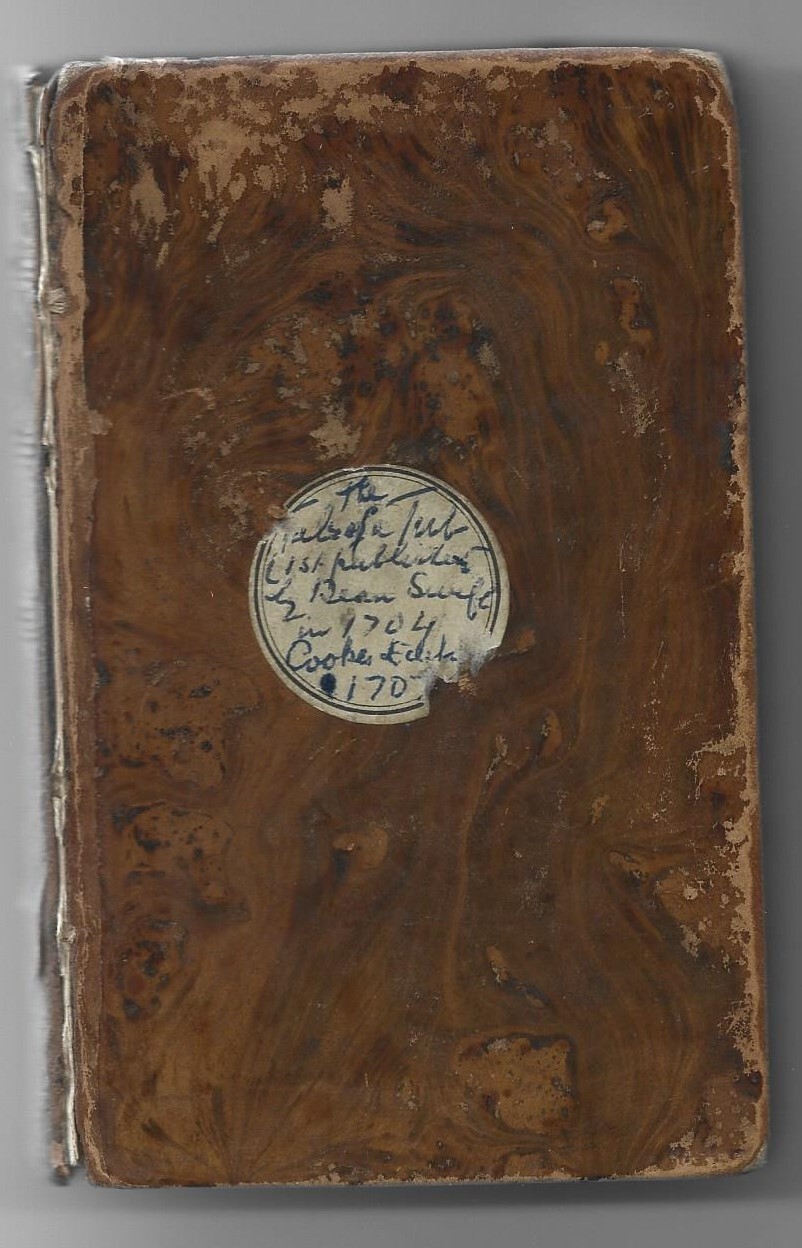 The
Tale of a Tub
(1st published
by Dean Swift
in 1704
Cooke's Edit
170